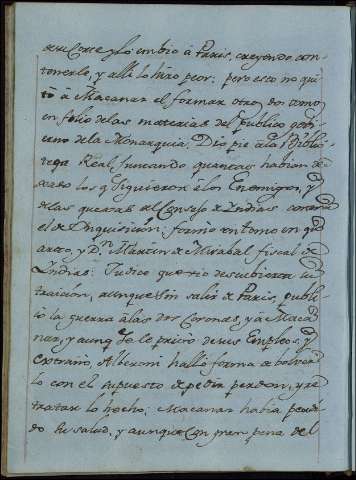 de su Corte y lo embio à Paris, creyendo con
tenerle, y alli lo hizo peor: pero esto no qui
tò à Macanaz el formar otros dos tomos
en folio de las materias del publico govi
erno de la Monarquia. Dio pie à la Biblio
teca Real, juntando quantas habian de
xado los q Siguieron à los Enemigos, y
de las quexas del Consejo de Indias contra
el de Ynquisicion: formò un tomo en qu
arto, y Dn Martin de Mirabal fiscal de
Yndias: Judice que vio descubierta su
traicion, aunque sin salir de Paris, publi
cò la guerra à las dos Coronas, y à Maca
naz, y aunq Yo le privè de sus Empleos, y
extrañè, Alberoni hallò forma de bolver
lo con el supuesto de pedir perdon, y re
tratar lo hecho: Macanaz habia perdi
do su salud, y aunque con gran pena del